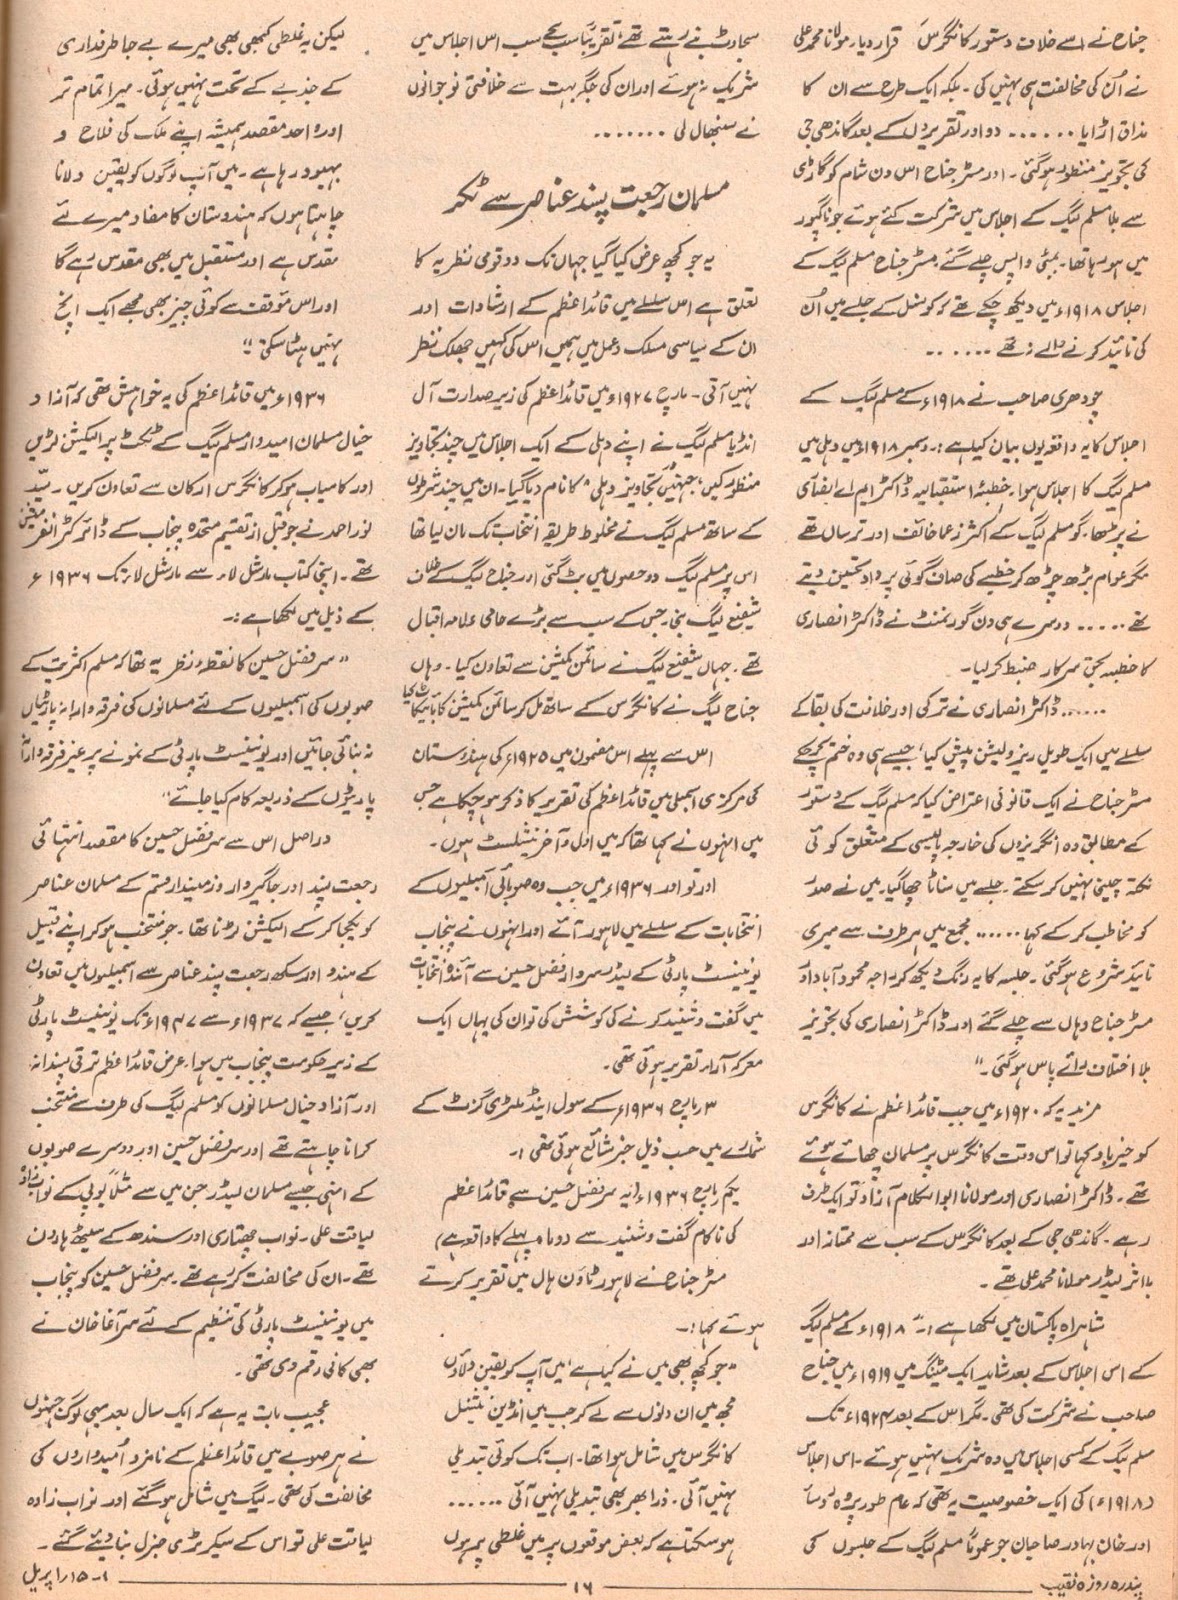 جناح نے اسے خلاف دستور کانگرس قرار دیا۔ مولانا محمد علی
نے اُن کی مخالفت ہی نہیں کی۔ بلکہ ایک طرح سے ان کا
مذاق اڑایا ...... دو اور تقریروں کے بعد گاندھی جی
کی تجویز منظور ہو گئی۔ اور مسٹر جناح اس دن شام کو گاڑی
سے بلا مسلم لیگ کے اجلاس میں شرکت کئے ہوئے جو ناگپور
میں ہو رہا تھا۔ بمبئی واپس چلے گئے۔ مسٹر جناح مسلم لیگ کے
اجلاس ۱۹۱۸ء میں دیکھ چکے تھے کہ کونسل کے جلسے میں اُن
کی تائید کرنے والے نہ تھے ......
چودھری صاحب نے ۱۹۱۸ء کے مسلم لیگ کے
اجلاس کا یہ واقعہ یوں بیان کیا ہے:۔ دسمبر ۱۹۱۸ء میں دہلی میں
مسلم لیگ کا اجلاس ہوا۔ خطبۂ استقبالیہ ڈاکٹر ایم اے انصاری
نے پڑھا۔ گو مسلم لیگ کے اکثر زعما خائف اور ترساں تھے
مگر عوام بڑھ چڑھ کر خطبے کی صاف گوئی پر داد تحسین دیتے
تھے ..... دوسرے ہی دن گورنمنٹ نے ڈاکٹر انصاری
کا خطبہ بحق سرکار ضبط کر لیا۔
...... ڈاکٹر انصاری نے ترکی اور خلافت کی بقا کے
سلسلے میں ایک طویل ریزولیشن پیش کیا، جیسے ہی وہ ختم کر چکے
مسٹر جناح نے ایک قانونی اعتراض کیا کہ مسلم لیگ کے دستور
کے مطابق وہ انگریزوں کی خارجہ پالیسی کے متعلق کوئی
نکتہ چینی نہیں کر سکتے۔ جلسے میں سناٹا چھا گیا۔ میں نے صدر
کو مخاطب کر کے کہا ...... مجمع میں ہر طرف سے میری
تائید شروع ہو گئی۔ جلسہ کا یہ رنگ دیکھ کر راجہ محمود آباد اور
مسٹر جناح وہاں سے چلے گئے اور ڈاکٹر انصاری کی تجویز
بلا اختلاف رائے پاس ہو گئی۔"
مزید یہ کہ ۱۹۲۰ء میں جب قائداعظم نے کانگرس
کو خیرباد کہا تو اس وقت کانگرس پر مسلمان چھائے ہوئے
تھے۔ ڈاکٹر انصاری اور مولانا ابوالکلام آزاد تو ایک طرف
رہے۔ گاندھی جی کے بعد کانگرس کے سب سے ممتاز اور
با اثر لیڈر مولانا محمد علی تھے۔
شاہراہ پاکستان میں لکھا ہے:۔ "۱۹۱۸ء کے مسلم لیگ
کے اس اجلاس کے بعد شاید ایک میٹنگ میں ۱۹۱۹ء میں جناح
صاحب نے شرکت کی تھی۔ مگر اس کے بعد ۱۹۲۴ء تک
مسلم لیگ کے کسی اجلاس میں وہ شریک نہیں ہوئے۔ اس اجلاس
(۱۹۱۸ء) کی ایک خصوصیت یہ تھی کہ عام طور پر وہ رؤسا
اور خان بہادر صاحبان جو عموماً مسلم لیگ کے جلسوں کی
سجاوٹ بنے رہتے تھے، تقریباً سب کے سب اس اجلاس میں
شریک نہ ہوئے اور ان کی جگہ بہت سے خلافتی نوجوانوں
نے سنبھال لی ......
مسلمان رجعت پسند عناصر سے ٹکر
یہ جو کچھ عرض کیا گیا جہاں تک دو قومی نظریہ کا
تعلق ہے اس سلسلے میں قائداعظم کے ارشادات اور
ان کے سیاسی مسلک و عمل میں ہمیں اس کی کہیں جھلک نظر
نہیں آتی۔ مارچ ۱۹۲۷ء میں قائداعظم کی زیر صدارت آل
انڈیا مسلم لیگ نے اپنے دہلی کے ایک اجلاس میں چند تجاویز
منظور کیں، جنہیں "تجاویز دہلی" کا نام دیا گیا۔ ان میں چند شرطوں
کے ساتھ مسلم لیگ نے مخلوط طریقہ انتخاب تک مان لیا تھا
اس پر مسلم لیگ دو حصوں میں بٹ گئی اور جناح لیگ کے خلاف
شفیع لیگ بنی۔ جس کے سب سے بڑے حامی علامہ اقبال
تھے۔ جہاں شفیع لیگ نے سائمن کمیشن سے تعاون کیا۔ وہاں
جناح لیگ نے کانگرس کے ساتھ مل کر سائمن کمیشن کا بائیکاٹ کیا
اس سے پہلے اس مضمون میں ۱۹۲۵ء کی ہندوستان
کی مرکزی اسمبلی میں قائداعظم کی تقریر کا ذکر ہو چکا ہے جس
میں انہوں نے کہا تھا کہ میں اول و آخر نیشنلسٹ ہوں۔
اور تو اور ۱۹۳۶ء میں جب وہ صوبائی اسمبلیوں کے
انتخابات کے سلسلے میں لاہور آئے اور انہوں نے پنجاب
یونینسٹ پارٹی کے لیڈر سر فضل حسین سے آئندہ انتخابات
میں گفت و شنید کرنے کی کوشش کی تو ان کی یہاں ایک
معرکہ آراء تقریر ہوئی تھی۔
۳ مارچ ۱۹۳۶ء کے سول اینڈ ملٹری گزٹ کے
شمارے میں حسب ذیل خبر شائع ہوئی تھی:۔
یکم مارچ ۱۹۳۶ء (یہ سر فضل حسین سے قائداعظم
کی ناکام گفت و شنید سے دو ماہ پہلے کا واقعہ ہے)
مسٹر جناح نے لاہور ٹاؤن ہال میں تقریر کرتے
ہوئے کہا:۔
"جو کچھ بھی میں نے کیا ہے، میں آپ کو یقین دلاؤں
مجھ میں ان دنوں سے لے کر جب میں انڈین نیشنل
کانگرس میں شامل ہوا تھا۔ اب تک کوئی تبدیلی
نہیں آئی۔ ذرا بھر بھی تبدیلی نہیں آئی ......
ہو سکتا ہے کہ بعض موقعوں پر میں غلطی پر ہوں
لیکن یہ غلطی کبھی بھی میرے بے جا طرفداری
کے جذبے کے تحت نہیں ہوئی۔ میرا تمام تر
اور واحد مقصد ہمیشہ اپنے ملک کی فلاح و
بہبود رہا ہے۔ میں آپ لوگوں کو یقین دلانا
چاہتا ہوں کہ ہندوستان کا مفاد میرے لئے
مقدس ہے اور مستقبل میں بھی مقدس رہے گا
اور اس مؤقف سے کوئی چیز بھی مجھے ایک انچ
نہیں ہٹا سکتی۔"
۱۹۳۶ء میں قائداعظم کی یہ خواہش تھی کہ آزاد
خیال مسلمان امیدوار مسلم لیگ کے ٹکٹ پر الیکشن لڑیں
اور کامیاب ہو کر کانگرس ارکان سے تعاون کریں۔ سید
نور احمد نے جو قبل از تقسیم متحدہ پنجاب کے ڈائرکٹر انفرمیشن
تھے۔ اپنی کتاب مارشل لاء سے مارشل لاء تک ۱۹۳۶ء
کے ذیل میں لکھا ہے:۔
"سر فضل حسین کا نقطۂ نظر یہ تھا کہ مسلم اکثریت کے
صوبوں کی اسمبلیوں کے لئے مسلمانوں کی فرقہ وارانہ پارٹیاں
نہ بنائی جائیں اور یونینسٹ پارٹی کے نمونے پر غیر فرقہ وارانہ
پارٹیوں کے ذریعہ کام کیا جائے"
دراصل اس سے سر فضل حسین کا مقصد انتہائی
رجعت پسند اور جاگیردار و زمیندار قسم کے مسلمان عناصر
کو یکجا کر کے الیکشن لڑنا تھا۔ جو منتخب ہو کر اپنے قبیل
کے ہندو اور سکھ رجعت پسند عناصر سے اسمبلیوں میں تعاون
کریں، جیسے کہ ۱۹۳۷ء سے ۱۹۴۷ء تک یونینسٹ پارٹی
کے زیر حکومت پنجاب میں ہوا۔ غرض قائداعظم ترقی پسندانہ
اور آزاد خیال مسلمانوں کو مسلم لیگ کی طرف سے منتخب
کرانا چاہتے تھے اور سر فضل حسین اور دوسرے صوبوں
کے انہی جیسے مسلمان لیڈر جن میں سے مثلاً یوپی کے نواب زادہ
لیاقت علی۔ نواب چھتاری اور سندھ کے سیٹھ ہارون
تھے۔ ان کی مخالفت کر رہے تھے۔ سر فضل حسین کو پنجاب
میں یونینسٹ پارٹی کی تنظیم کے لئے سر آغا خان نے
بھی کافی رقم دی تھی۔
عجیب بات یہ ہے کہ ایک سال بعد یہی لوگ جنہوں
نے ہر صوبے میں قائداعظم کے نامزد اُمیدواروں کی
مخالفت کی تھی۔ لیگ میں شامل ہو گئے اور نواب زادہ
لیاقت علی تو اس کے سیکرٹری جنرل بنا دیئے گئے۔
پندرہ روزہ نقیب
۱۶
۱۔۱۵ اپریل